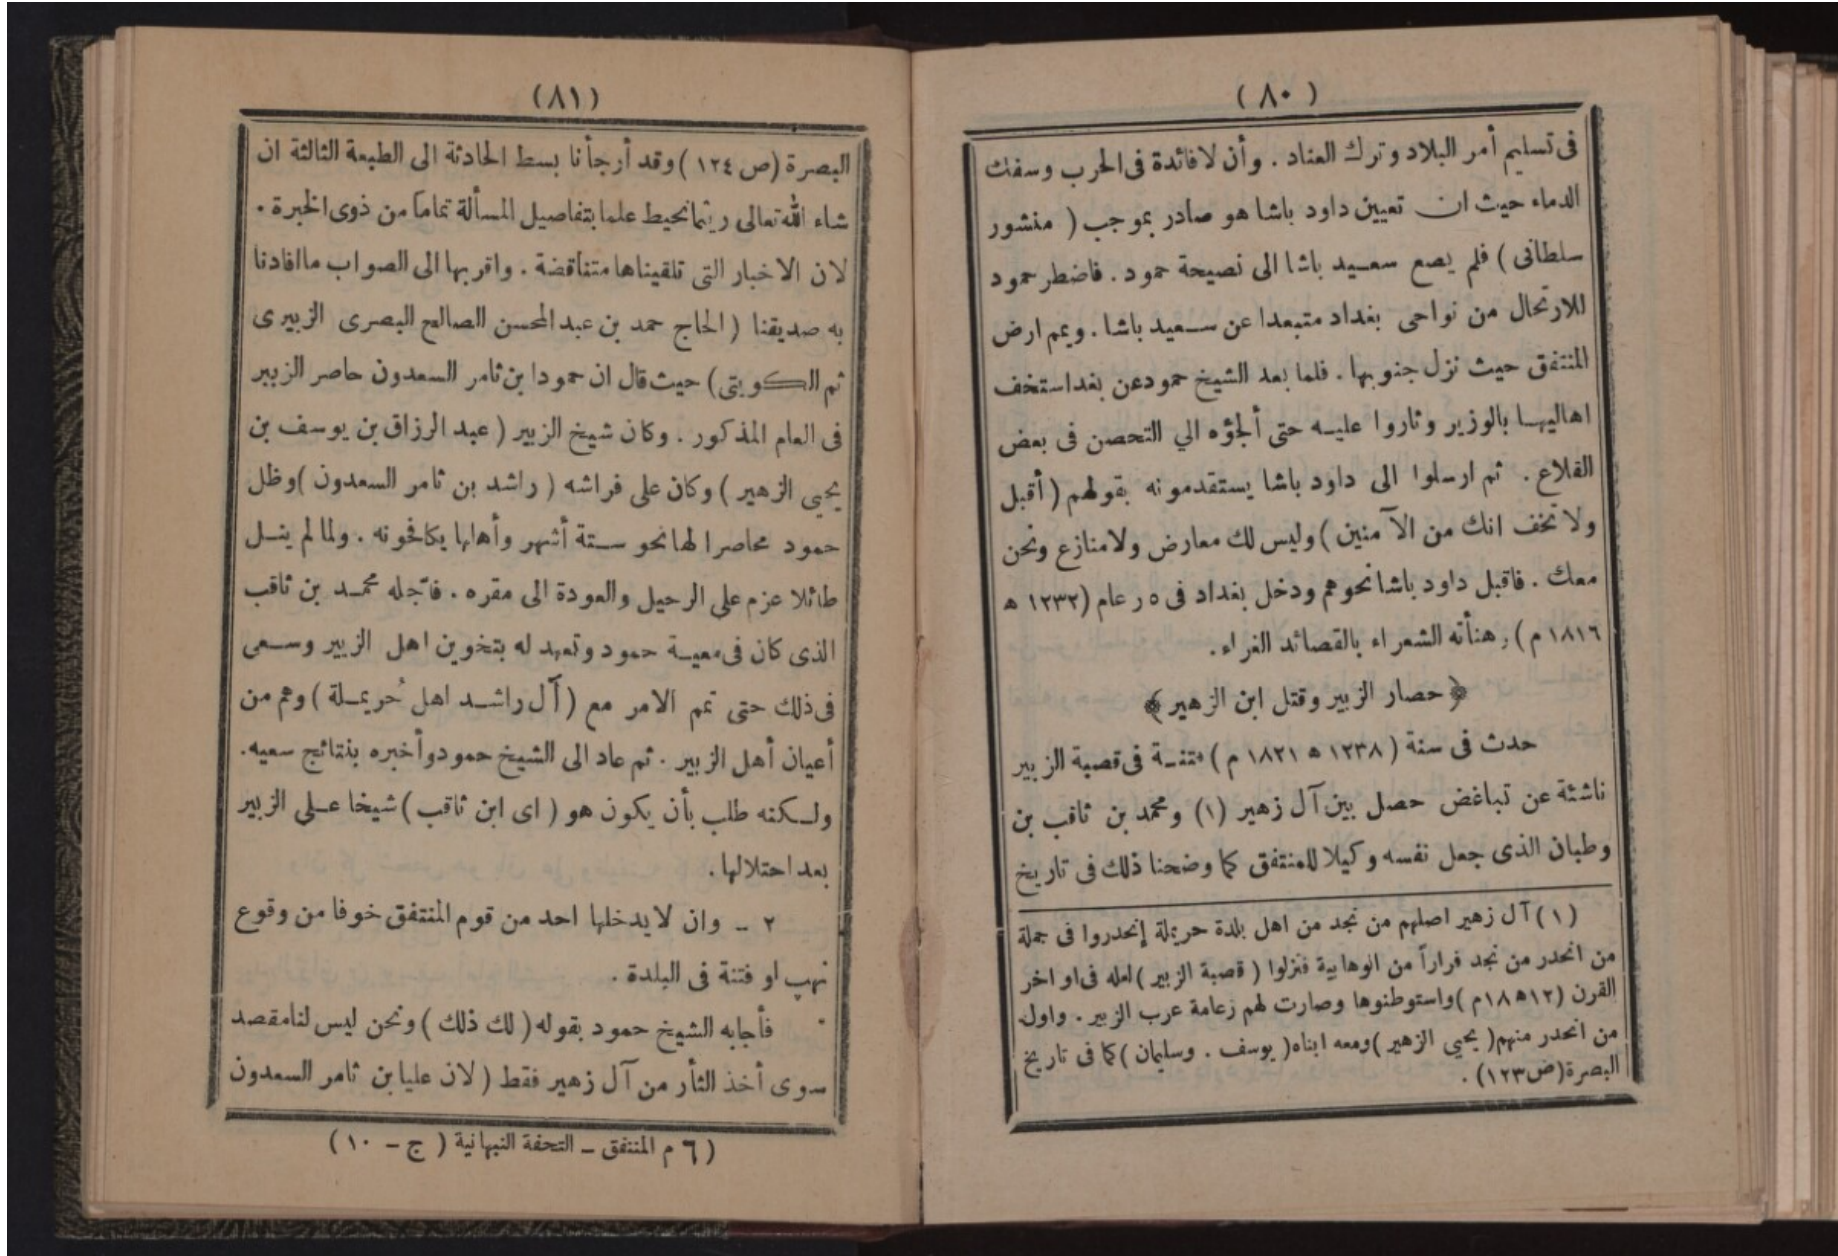 ( ٨٠ )
فى تسليم أمر البلاد وترك العناد . وأن لا فائدة فى الحرب وسفك
الدماء حيث ان تعيين داود باشا هو صادر بموجب ( منشور
سلطانى ) فلم يصع سعيد باشا الى نصيحة حمود . فاضطر حمود
للارتحال من نواحى بغداد متبعدا عن سعيد باشا . ويمم ارض
المنتفق حيث نزل جنوبها . فلما بعد الشيخ حمود عن بغداستخف
اهاليها بالوزير وثاروا عليه حتى ألجؤه الي التحصن فى بعض
القلاع . ثم ارسلوا الى داود باشا يستقدمونه بقولهم ( أقبل
ولا تخف انك من الآمنين ) وليس لك معارض ولا منازع ونحن
معك . فاقبل داود باشا نحوهم ودخل بغداد فى ٥ ر عام ( ١٢٣٢ ه
١٨١٦ م ) وهنأته الشعراء بالقصائد الغراء .
﴿ حصار الزبير وقتل ابن الزهير ﴾
حدث فى سنة ( ١٢٣٨ ه ١٨٢١ م ) فتنة فى قصبة الزبير
ناشئة عن تباغض حصل بين آل زهير (١) ومحمد بن ثاقب بن
وطبان الذى جعل نفسه وكيلا للمنتفق كما وضحنا ذلك فى تاريخ
(١) آل زهير اصلهم من نجد من اهل بلدة حريملة إنحدروا فى جملة
من انحدر من نجد فراراً من الوهابية فنزلوا ( قصبة الزبير ) لعله فى اواخر
القرن (١٢ه١٨م) واستوطنوها وصارت لهم زعامة عرب الزبير . واول
من انحدر منهم ( يحيي الزهير ) ومعه ابناه ( يوسف . وسليمان ) كما فى تاريخ
البصرة (ص١٢٣) .
(٨١)
البصرة (ص ١٢٤ ) وقد أرجأنا بسط الحادثة الى الطبعة الثالثة ان
شاء الله تعالى ريثما نحيط علما بتفاصيل المسألة تماما من ذوى الخبرة .
لان الاخبار التى تلقيناها متناقضة . واقربها الى الصواب ما افادنا
به صديقنا ( الحاج حمد بن عبد المحسن الصالح البصرى الزبيرى
ثم الكويتى ) حيث قال ان حمودا بن ثامر السعدون حاصر الزبير
فى العام المذكور . وكان شيخ الزبير ( عبد الرزاق بن يوسف بن
يحيى الزهير ) وكان على فراشه ( راشد بن ثامر السعدون ) وظل
حمود محاصرا لها نحو ستة أشهر وأهلها يكافحونه . ولما لم ينل
طائلا عزم على الرحيل والعودة الى مقره . فآتجله محمد بن ثاقب
الذى كان فى معية حمود وتعهد له بتخوين اهل الزبير وسعى
فى ذلك حتى تمم الامر مع ( آل راشد اهل حُريملة ) وهم من
أعيان أهل الزبير . ثم عاد الى الشيخ حمود وأخبره بنتائج سعيه .
ولكنه طلب بأن يكون هو ( اى ابن ثاقب ) شيخا على الزبير
بعد احتلالها .
٢ - وان لا يدخلها احد من قوم المنتفق خوفا من وقوع
نهب او فتنة فى البلدة .
فأجابه الشيخ حمود بقوله ( لك ذلك ) ونحن ليس لنا مقصد
سوى أخذ الثأر من آل زهير فقط ( لان عليا بن ثامر السعدون
( ٦ م المنتفق - التحفة النبهانية ( ج - ١٠ )